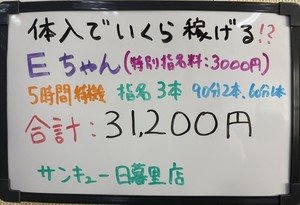 体入でいくら稼げる!?
Eちゃん(特別指名料:3000円)
5時間待機 指名3本 90分2本、60分1本
合計:31,200円
サンキュー日暮里店